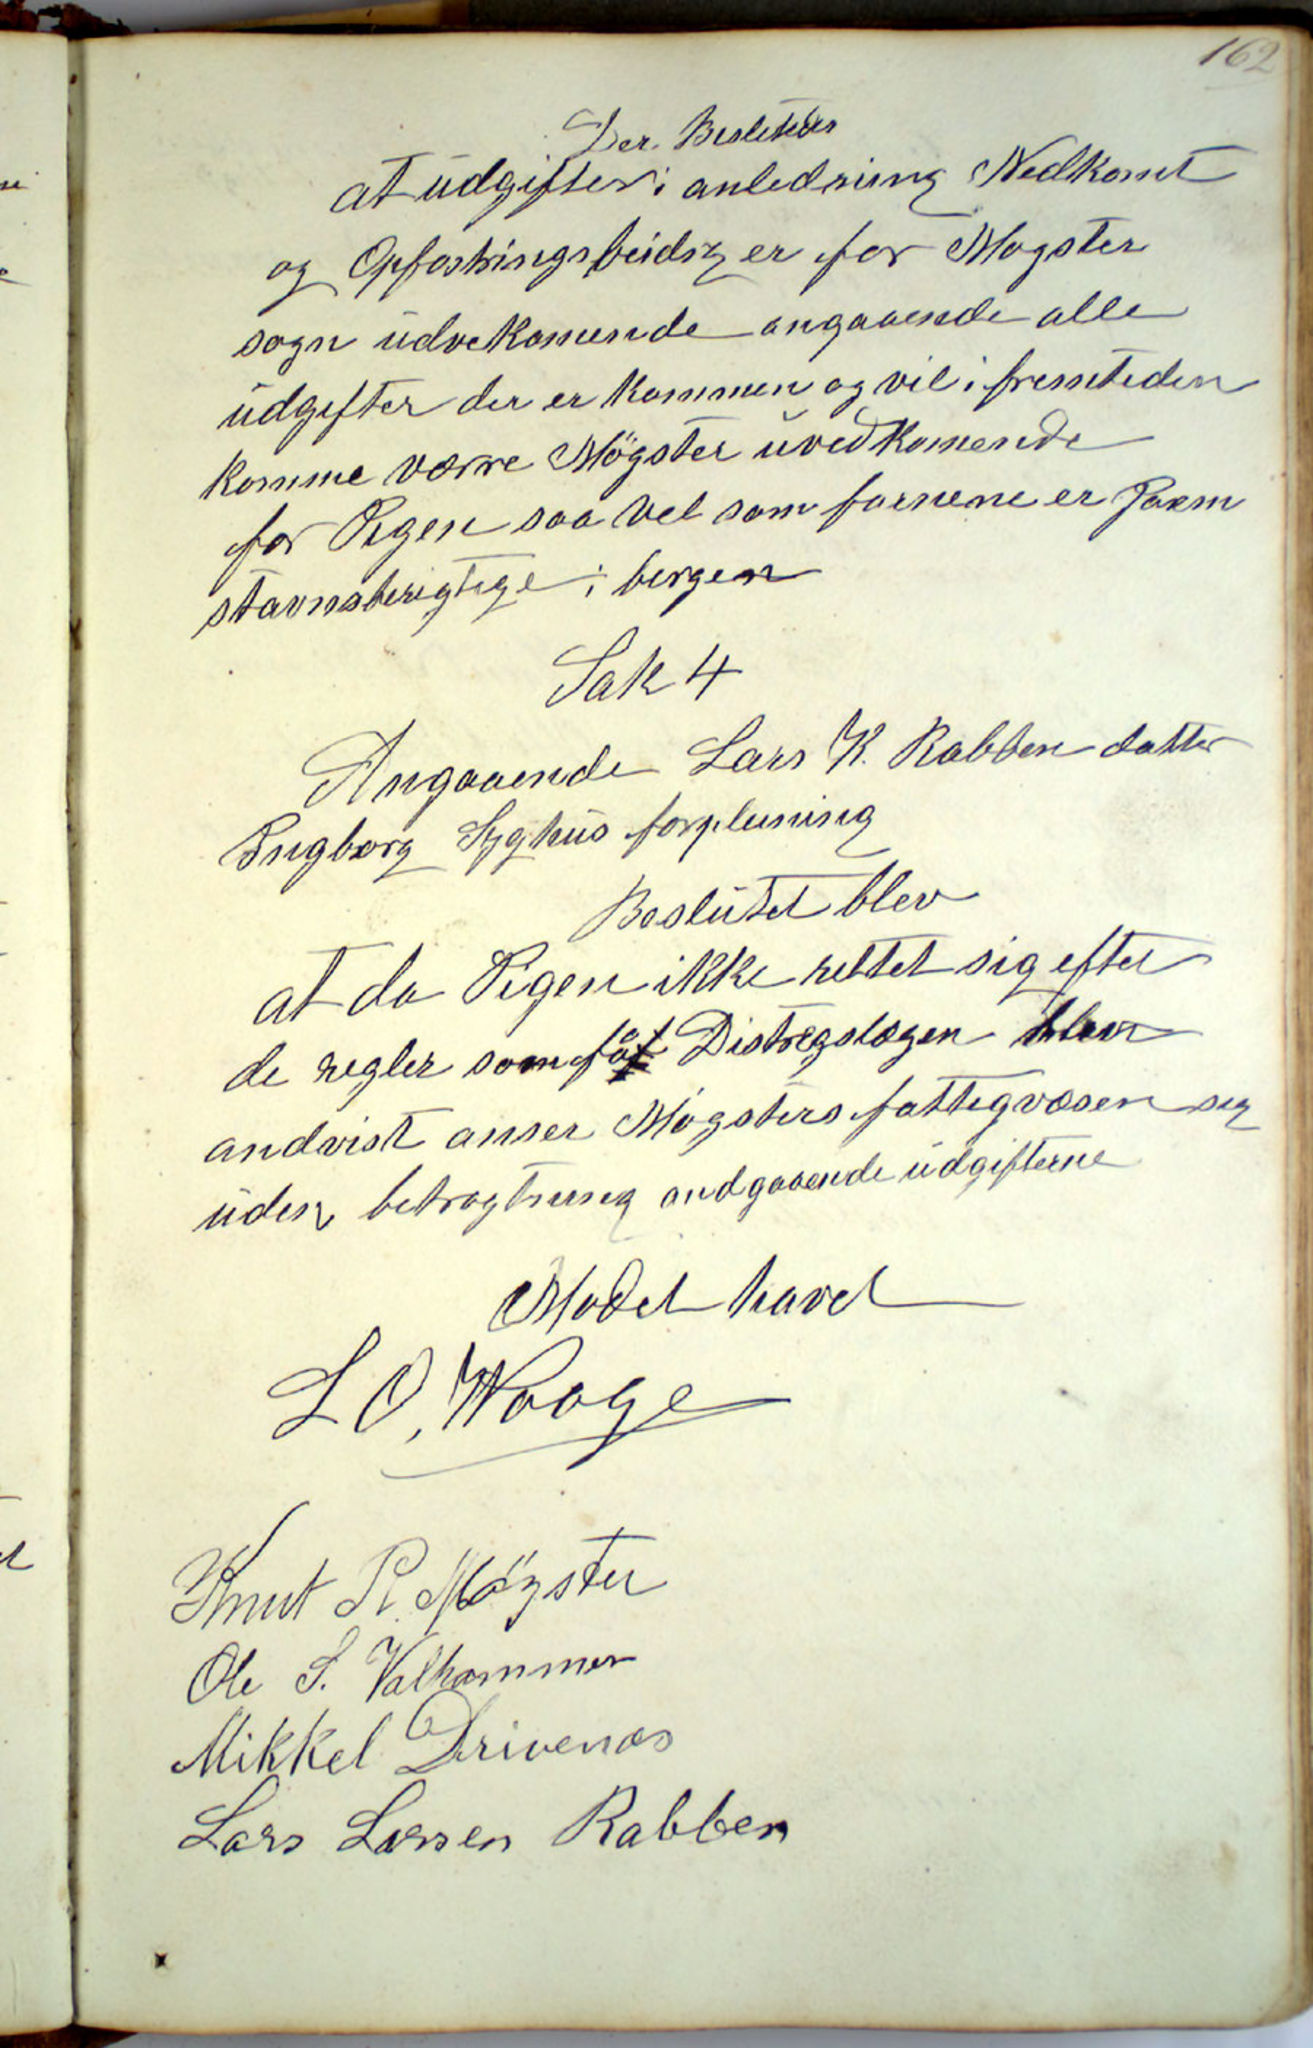 162
Der Besletedes
at udgifter i anledning Nedkomst
og Opfostringsbeidrg er for Møgster
sogn udvekomende angaaende alle
udgifter der er kommen og vil i fremteden
komme være Møgster uvedkomende
for Pigen saa vel som fornene er
stavnsberigtige i bergen
Sak 4
Angaaende Lars K. Rabben datter
Ingborg Sygkus forpleining
Beslutet blev
at da Pigen ikke rettet sig efter
de regler som Distregslægen blev
andvist anser Møgsters fattigvæsen sig
uden betragtning andgaaende udgifterne
Mødet hævet
L O, Waage
Knut R. Møgster
Ole S. Valhammer
Mikkel Drivenæs
Lars Larsen Rabben